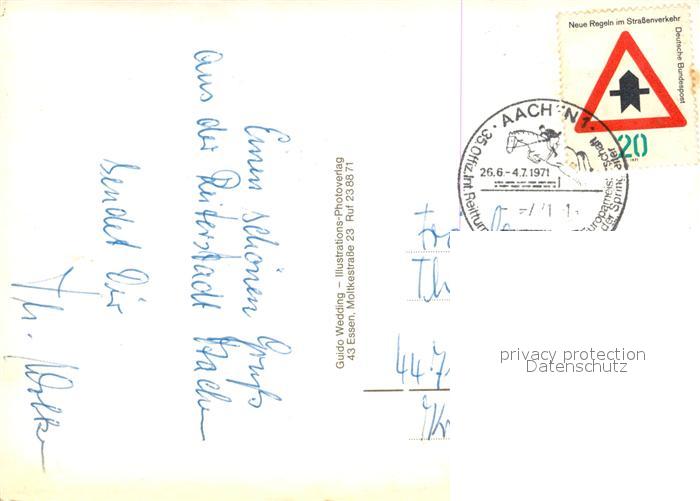 Einen schönen Gruß
aus der Reiterstadt Aachen
sendet Dir
Guido Wedding – Illustrations-Photoverlag
43 Essen, Moltkestraße 23 Ruf 238871
Neue Regeln im Straßenverkehr
Deutsche Bundespost
20
1971
AACHEN 1
35. Offiz. Int. Reittur
26.6.-4.7.1971
Europameisterschaft
der Spring
Th
privacy protection
Datenschutz